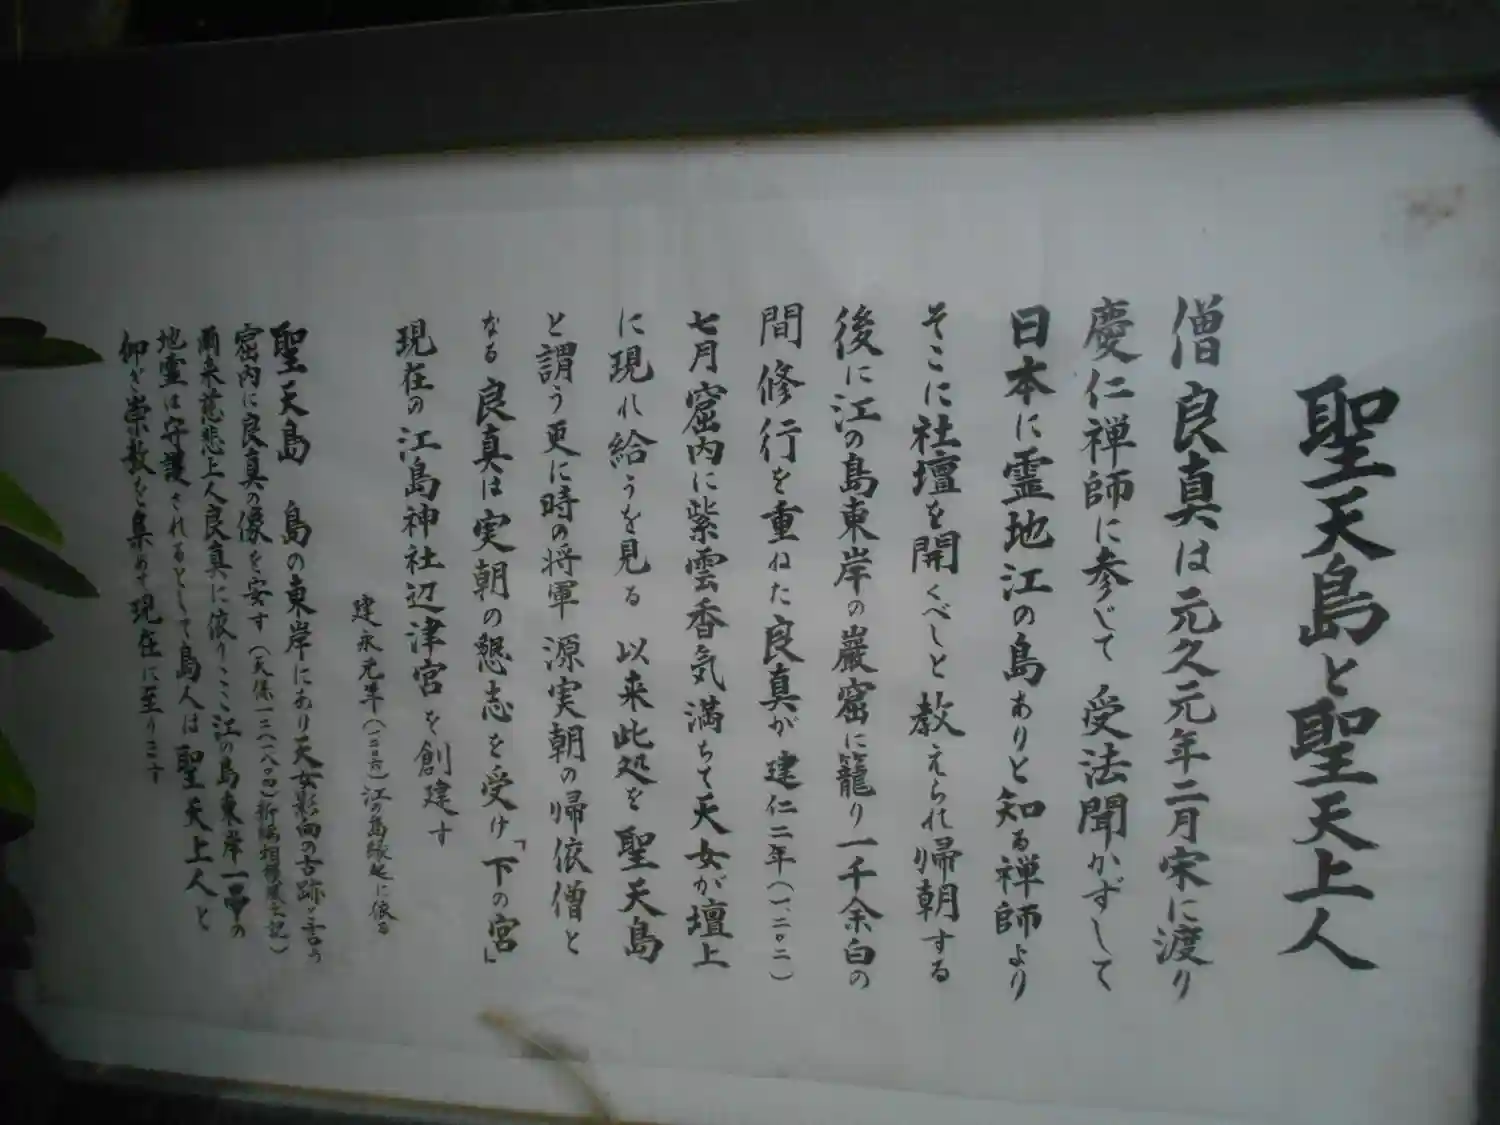 聖天島と聖天上人
僧良真は元久元年二月宋に渡り
慶仁禅師に参じて 受法聞かずして
日本に霊地江の島ありと知る禅師より
そこに社壇を開くべしと教えられ帰朝する
後に江の島東岸の巌窟に籠り一千余白の
間修行を重ねた良真が建仁二年(一二〇二)
七月窟内に紫雲香気満ちて天女が壇上
に現れ給うを見る 以来此処を聖天島
と謂う更に時の将軍 源実朝の帰依僧と
なる良真は実朝の懇志を受け「下の宮」
現在の江島神社辺津宮を創建す
建永元年(一二〇六)江の島縁起に依る
聖天島 島の東岸にあり天女影向の古跡と言う
窟内に良真の像を安す(天保一三(一八四)新編相模風土記)
爾来慈悲上人良真に依りここ江の島東岸一帯の
地霊は守護されるとして島人は聖天上人と
仰ぎ崇敬を集めて現在に至ります